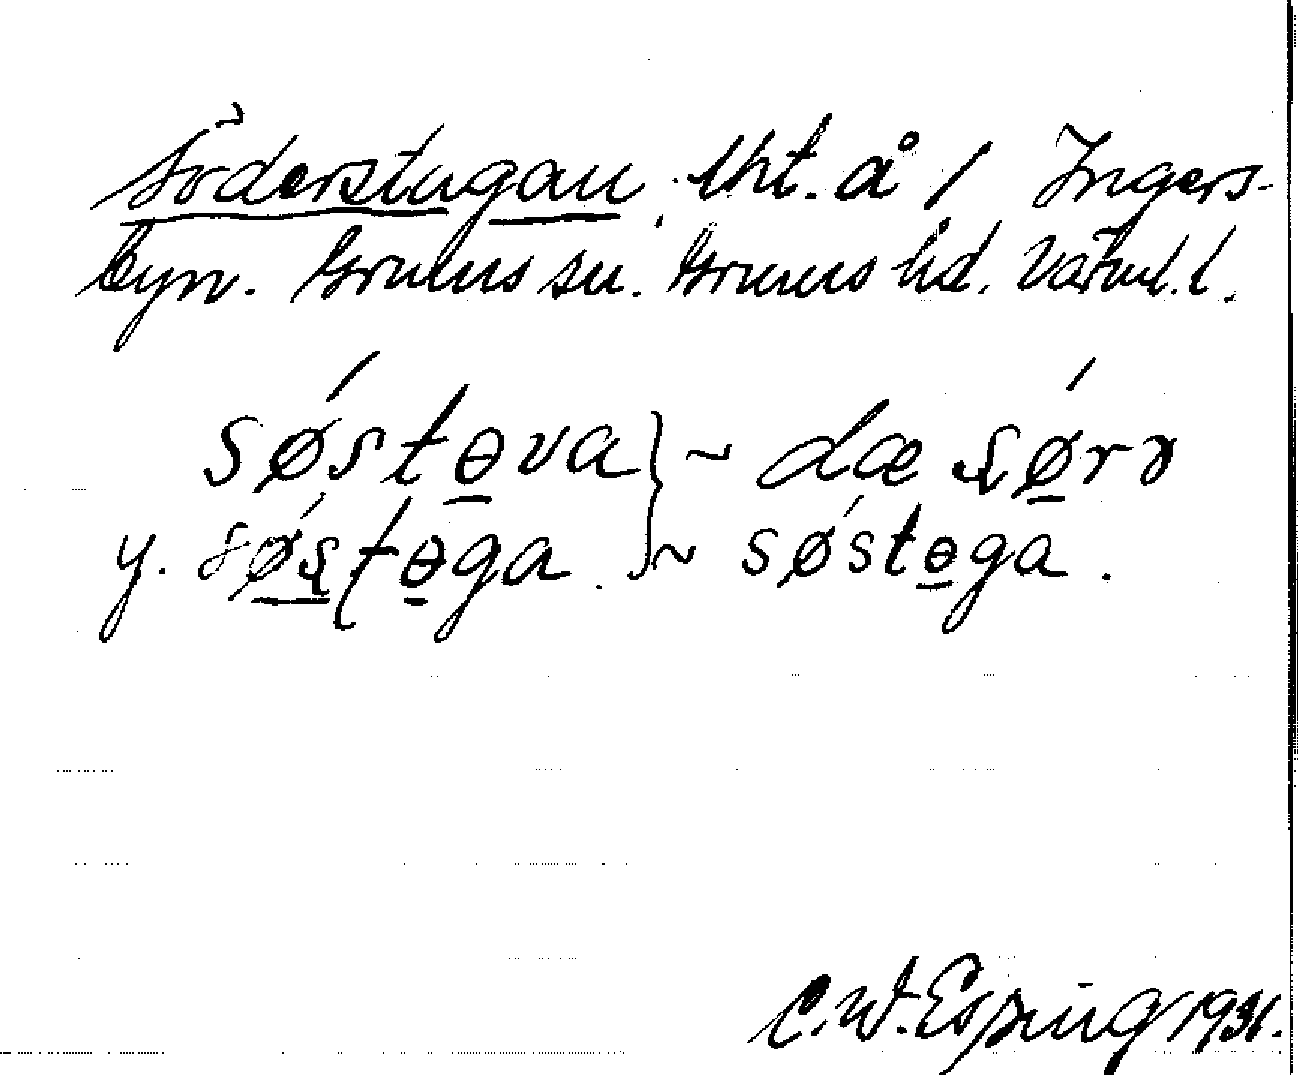 Söderstugan, lht. å / Ingers-
byn. Grums sn. Grums hd. Värml. l.
søstɵva } ~ dæ sørɤ
y. søstɵga. } ~ søstɵga.
C.W. Esping 1931.